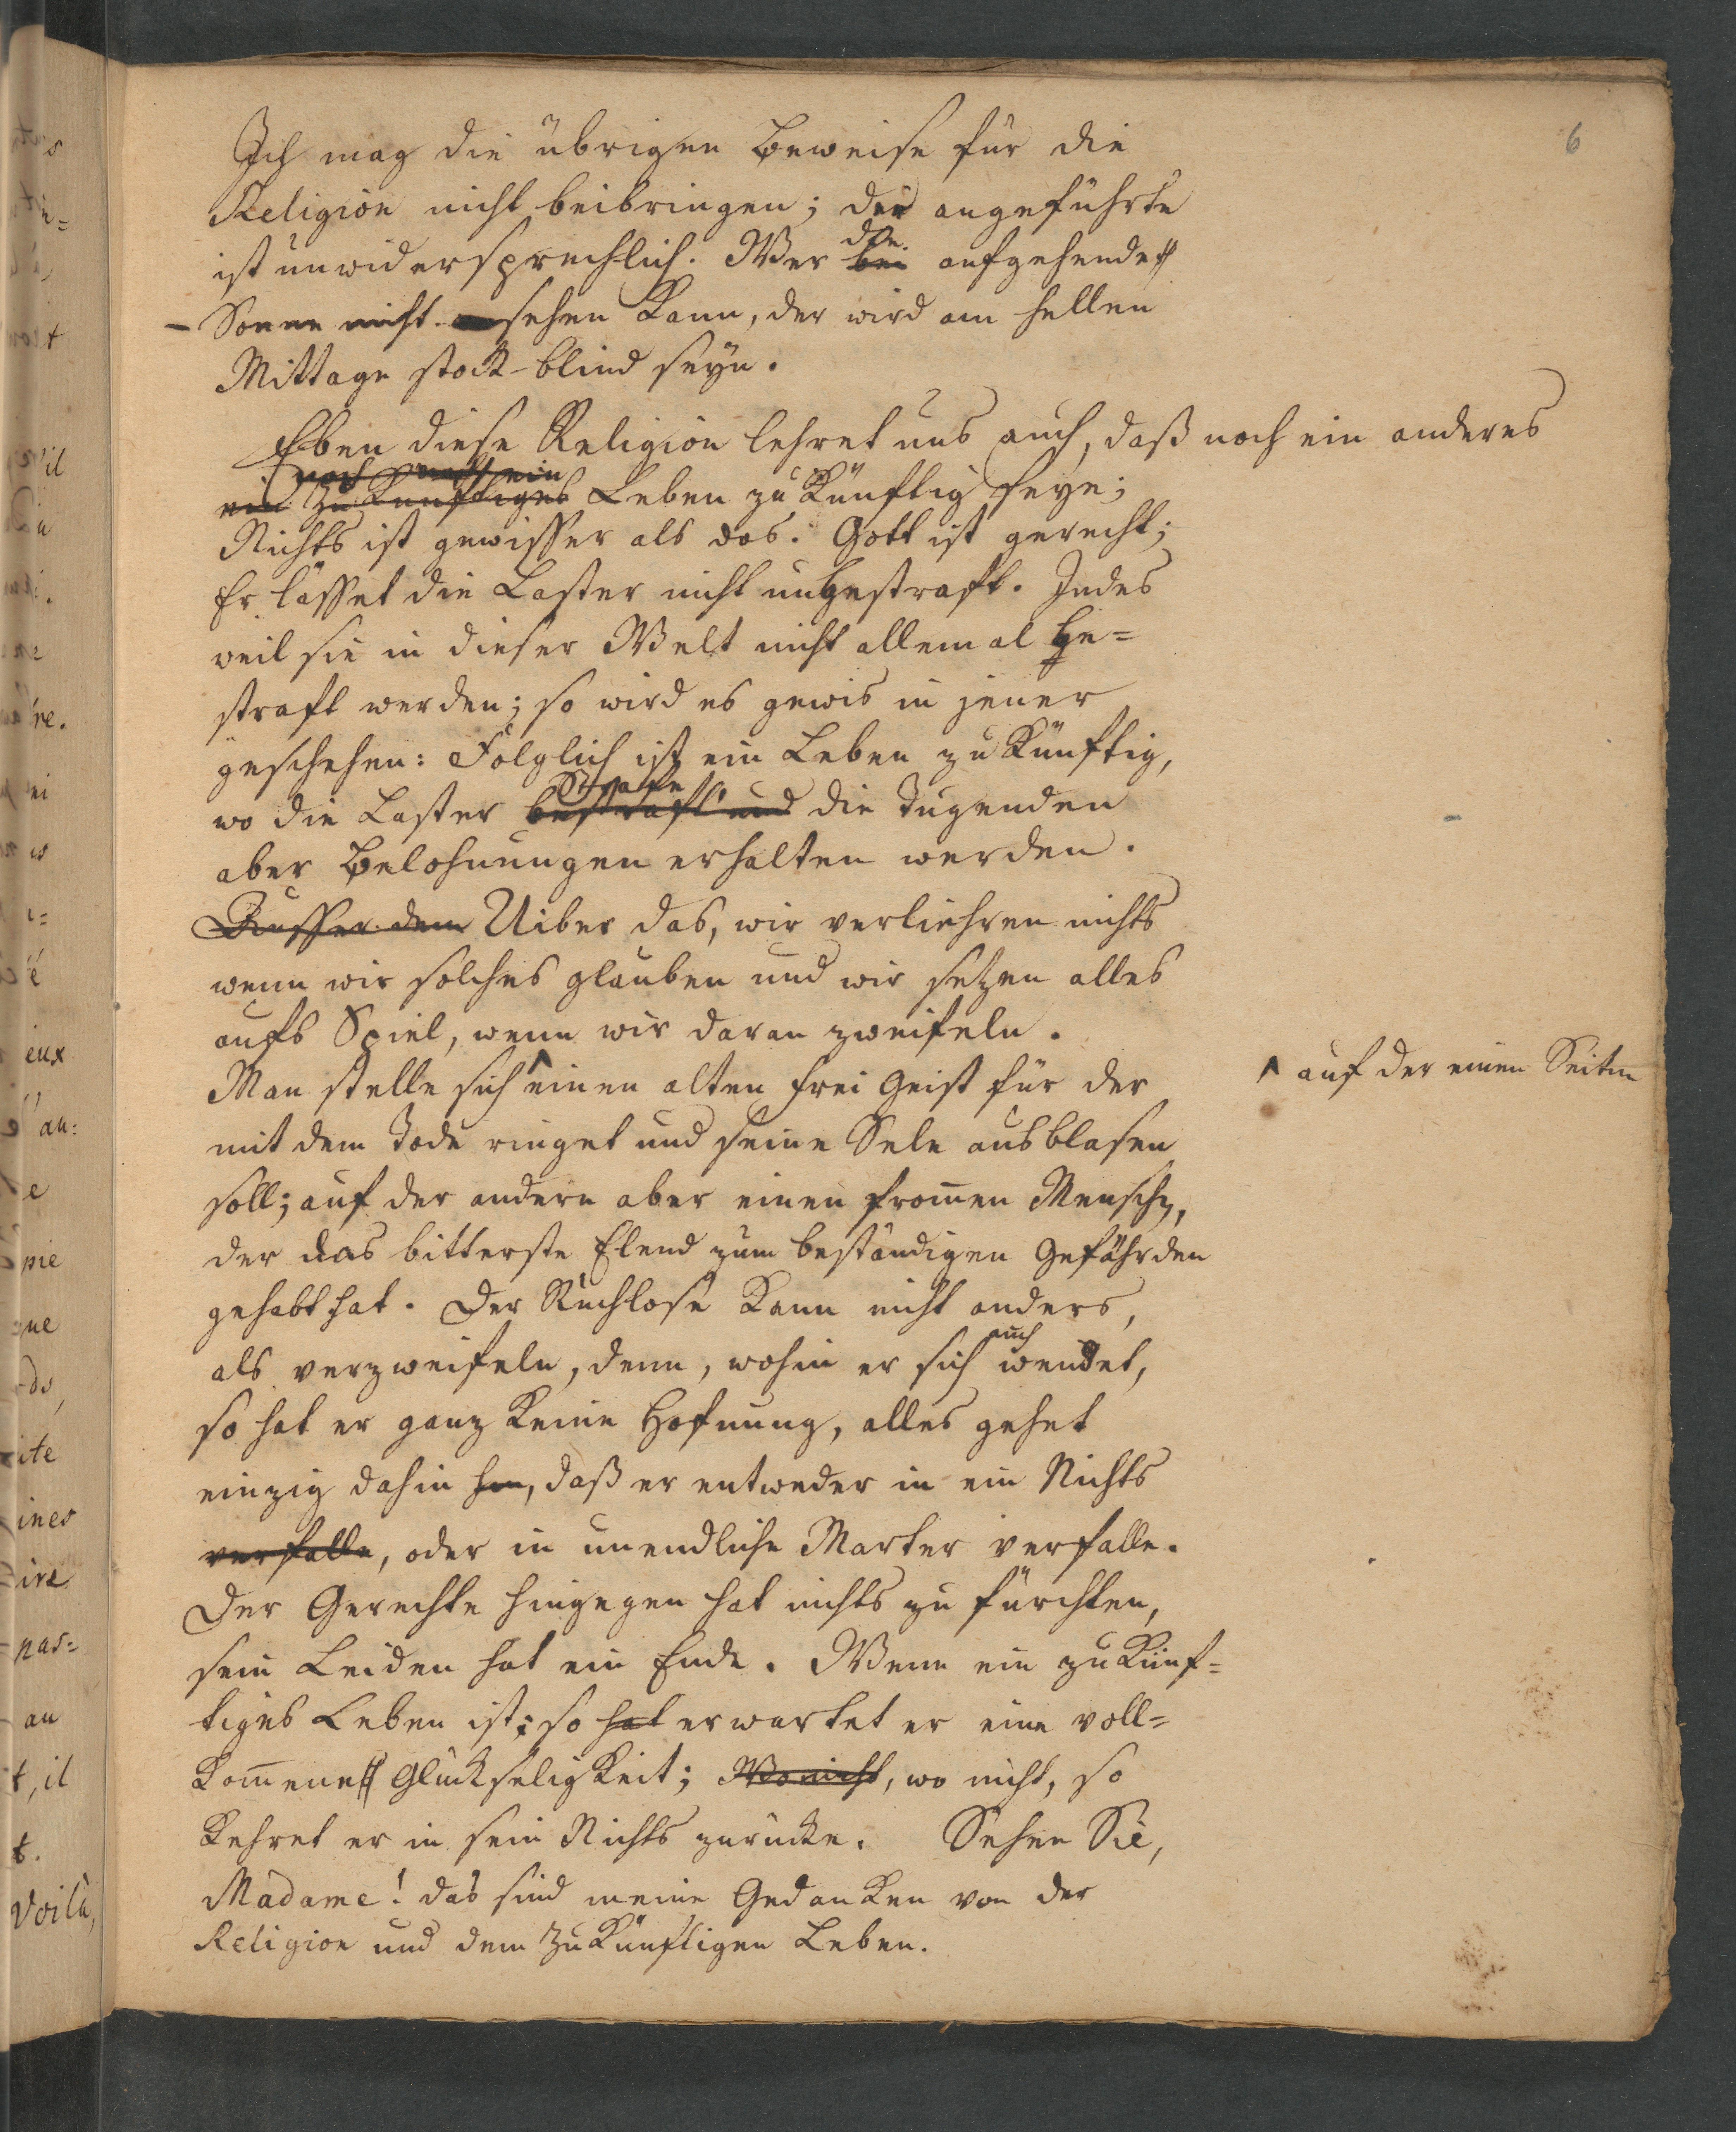 6
Ich mag die übrigen Beweise für die
Religion nicht beibringen; der angeführte
ist unwidersprechlich. Wer bei die aufgehende
Sonne nicht sehen kann, der wird am hellen
Mittage stock-blind seyn.
Eben diese Religion lehret uns auch, daß noch ein anderes
ein zukünftiges Leben zukünftig seye;
Nichts ist gewisser als das. Gott ist gerecht;
Er lässet die Laster nicht ungestraft. Indes
weil sie in dieser Welt nicht allemal ge=
straft werden; so wird es gewis in jener
geschehen: Folglich ist ein Leben zukünftig,
wo die Laster bestraft und Strafe die Tugenden
aber Belohnungen erhalten werden.
Ausser dem Uiber das, wir verliehren nichts
wenn wir solches glauben und wir setzen alles
aufs Spiel, wenn wir daran zweifeln.
Man stelle sich ^ einen alten frei Geist für der
^ auf der einen Seiten
mit dem Tode ringet und seine Sele ausblasen
soll; auf der andern aber einen from̄en Menschen,
der das bitterste Elend zum beständigen Gefährden
gehabt hat. Der Ruchlose kann nicht anders,
als verzweifeln, denn, wohin er sich auch wendet,
so hat er ganz keine Hofnung, alles gehet
einzig dahin hin, daß er entweder in ein Nichts
verfalle, oder in unendliche Marter verfalle.
Der Gerechte hingegen hat nichts zu fürchten,
sein Leiden hat ein Ende. Wenn ein zukünf=
tiges Leben ist; so hat erwartet er eine voll=
kom̄ene Glückseligkeit; Wo nicht, wo nicht, so
kehret er in sein Nichts zurücke. Sehen Sie,
Madame! das sind meine Gedanken von der
Religion und dem zukünftigen Leben.